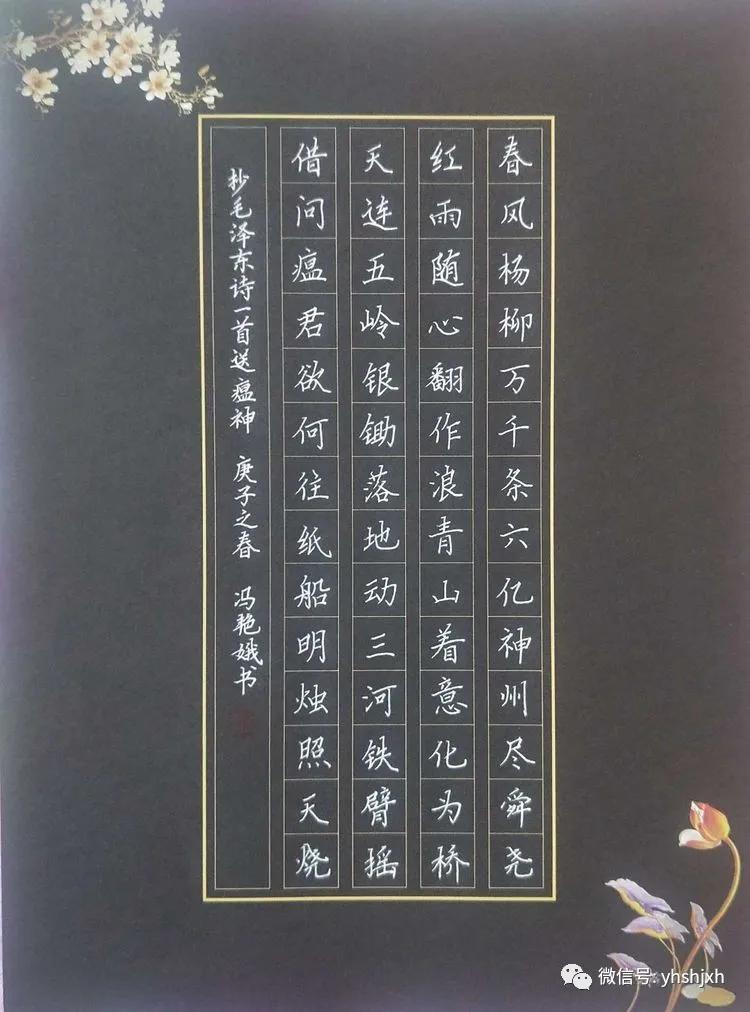 春风杨柳万千条六亿神州尽舜尧
红雨随心翻作浪青山着意化为桥
天连五岭银锄落地动三河铁臂摇
借问瘟君欲何往纸船明烛照天烧
抄毛泽东诗一首送瘟神 庚子之春 冯艳娥书
微信号: yhshjxh